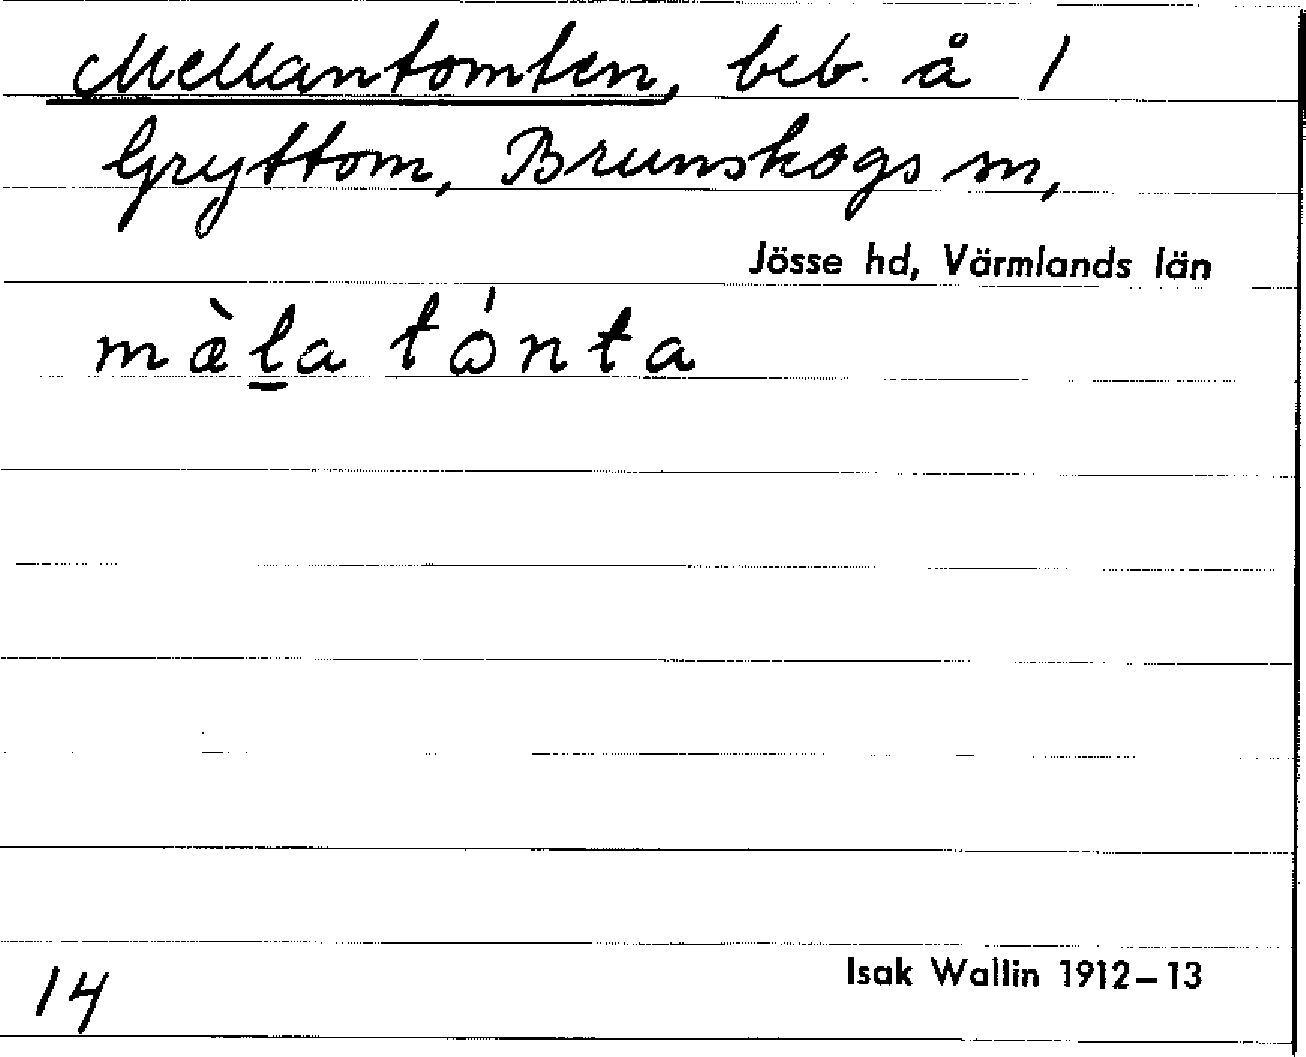 Mellantomten, beb. å 1
Gryttom, Brunskogs sn,
Jösse hd, Värmlands län
mæ̀l̠a tǿnta
14
Isak Wallin 1912–13